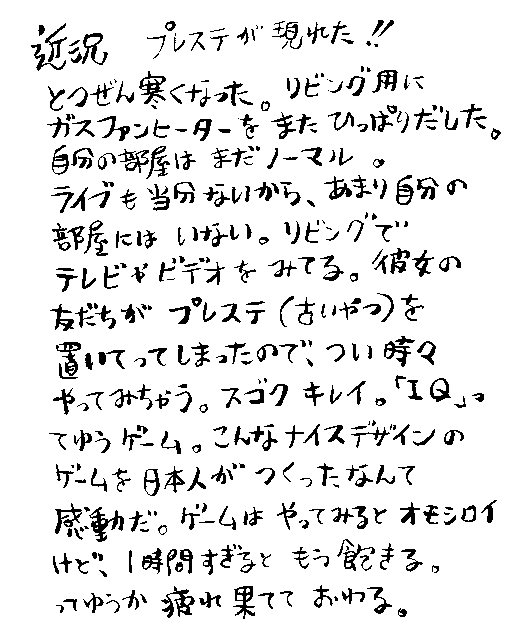 近況 プレステが現れた!!
とつぜん寒くなった。リビング用に
ガスファンヒーターをまたひっぱりだした。
自分の部屋はまだノーマル。
ライブも当分ないから、あまり自分の
部屋にはいない。リビングで
テレビやビデオをみてる。彼女の
友だちがプレステ(古いやつ)を
置いてってしまったので、つい時々
やってみちゃう。スゴクキレイ。「IQ」っ
てゆうゲーム。こんなナイスデザインの
ゲームを日本人がつくったなんて
感動だ。ゲームはやってみるとオモシロイ
けど、1時間すぎるともう飽きる。
ってゆうか疲れ果てておわる。